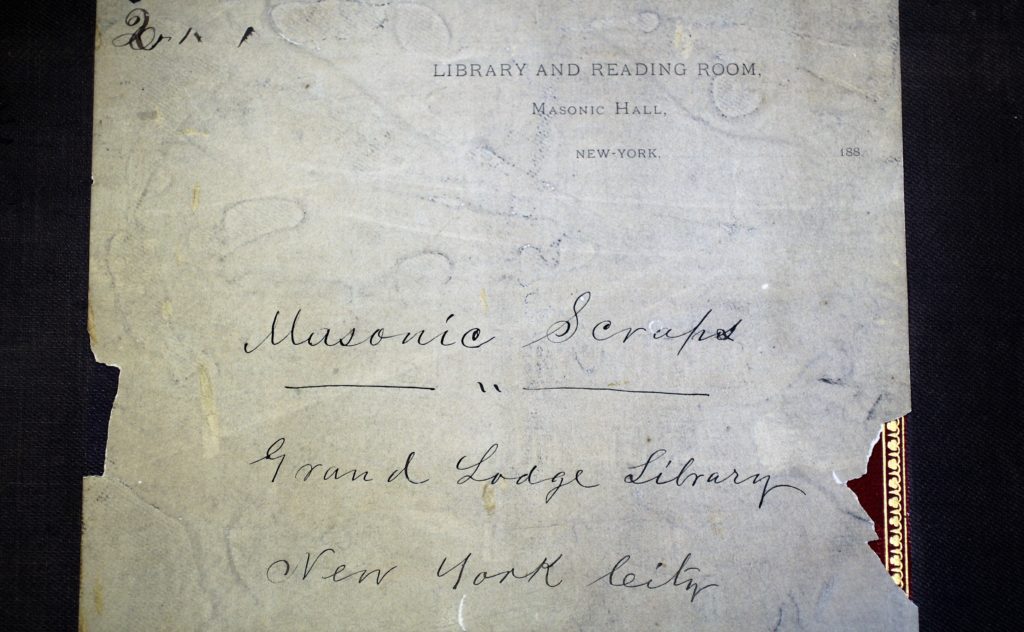 LIBRARY AND READING ROOM,
MASONIC HALL,
NEW-YORK, 188
Masonic Scraps
"
Grand Lodge Library
New York City